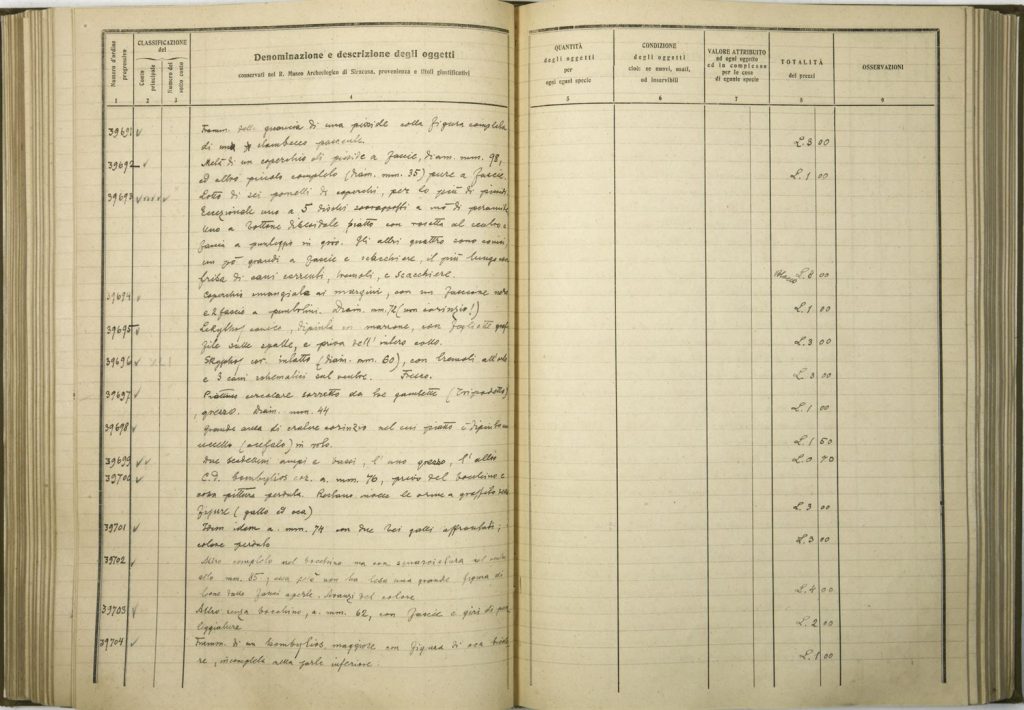 Numero d'ordine progressivo
CLASSIFICAZIONE
del
Conto principale
Numero del sotto conto
Denominazione e descrizione degli oggetti
conservati nel R. Museo Archeologico di Siracusa, provenienza e titoli giustificativi
QUANTITÀ
degli oggetti
per
ogni specie
CONDIZIONE
degli oggetti
cioè: se nuovi, usati,
od inservibili
VALORE ATTRIBUITO
ad ogni oggetto
ed in complesso
per le cose
di eguale specie
TOTALITÀ
dei prezzi
OSSERVAZIONI
1 2 3 4 5 6 7 8 9
39691 Framm. della guancia di una pisside colla figura completa
di stambecco pascente. L. 3 00
39692 Metà di un coperchio di pisside a fascie, diam. mm. 98,
ed altro piccolo completo (diam. mm. 35) pure a fascie. L. 1 00
39693 Lotto di sei pomelli di coperchi, per lo più di pissidi.
Eccezionale uno a 5 dischi sovrapposti a mò di piramide
uno a bottone discoidale piatto con rosetta al centro e
fascia a punteggio in giro. Gli altri quattro sono conici,
un pò grandi a fascie e scacchiere, il più lungo con
friba di cani correnti, tremoli, e scacchiere. L. 6 00
39694 Coperchio smangiato ai margini, con un fascione nero
e 2 fascie a puntolini. Diam. mm. 72 (non corinzio!) L. 1 00
39695 Lekythos conico, dipinto in marrone, con
sulle spalle, e privo dell'intero collo. L. 3 00
39696 Skyphos cor. intatto (diam. mm. 60), con tremoli all'orlo
e 3 cani schematici sul ventre. L. 3 00
39697 circolare sorretto da tre gambette (tripodetto)
grezzo. Diam. mm. 44 L. 1 00
39698 Grande ansa di cratere corinzio nel cui piatto è dipinto un
uccello (acefalo) in volo. L. 1 50
39699 Due scodellini ampi e bassi, l'uno grezzo, l'altro L. 0 70
39700 C.D. bombylios cor. a. mm. 76, privo del bocchino e
colla pittura perduta. Restano nocce le orme a graffito delle
figure (gallo ed oca) L. 3 00
39701 Idem idem a. mm. 74 con due bei galli affrontati;
colore perduto L. 3 00
39702 Altro completo nel bocchino ma con squarciatura nel ventre
alto mm. 85; essa però non ha lesa una grande figura di
leone dalle fauci aperte. Avanzi del colore L. 4 00
39703 Altro senza bocchino, a. mm. 62, con fascie e giri di pun
teggiature L. 2 00
39704 Framm. di un bombylios maggiore con figura di oca
re, incompleta nella parte inferiore. L. 1 00